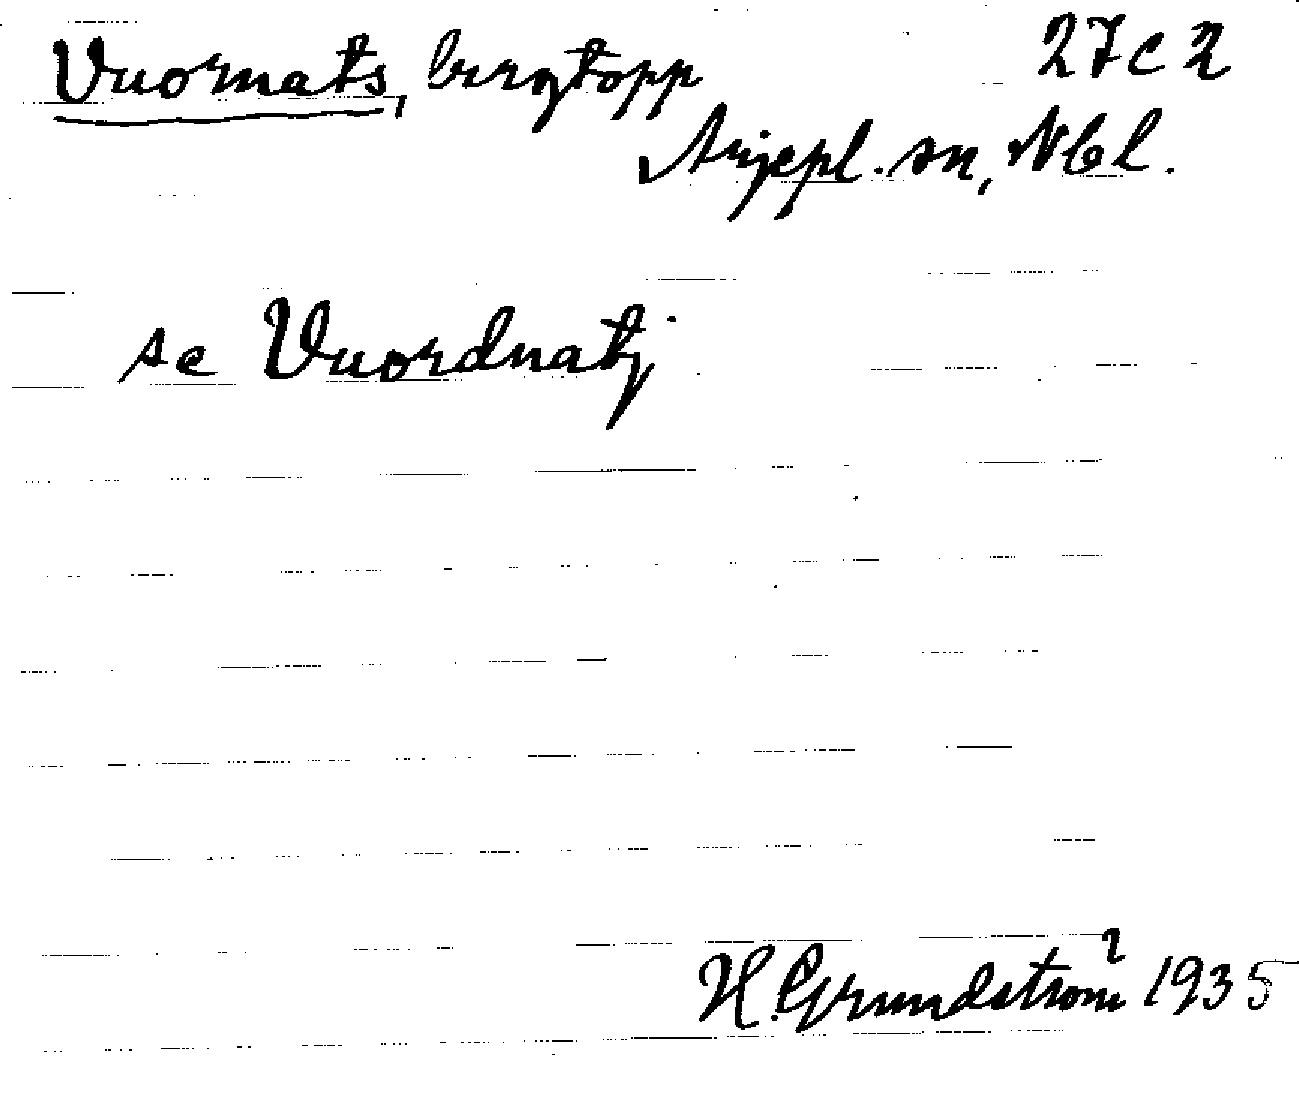 Vuornats, bergtopp 27c2
Arjepl. sn, Nbl.
se Vuordnatj
H. Grundström 1935